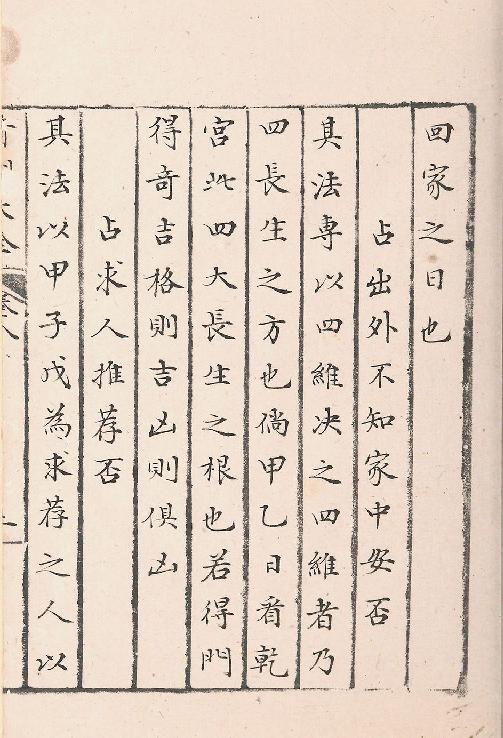 回家之日也
占出外不知家中安否
其法專以四維决之四維者乃
四長生之方也倘甲乙日看乾
宮此四大長生之根也若得門
得奇吉格則吉凶則俱凶
占求人推荐否
其法以甲子戊為求荐之人以